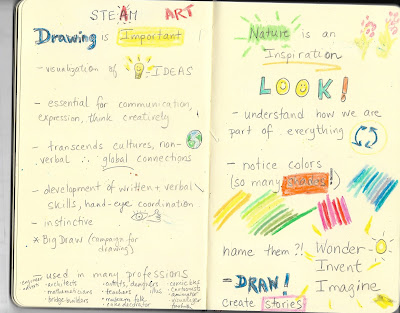 STEAM ART
Drawing is Important
- visualization of IDEAS
- essential for communication,
expression, think creatively
- transcends cultures, non-
verbal ∴ global connections
- development of written + verbal
skills, hand-eye coordination
- instinctive
* Big Draw (campaign for
drawing)
used in many professions
- architects
- mathematicians
- bridge builders
- outfits, designers
- teachers
- museum folk
- cake decorator
- cartoonists
- animator
Nature is an
Inspiration
LOOK!
- understand how we are
part of everything
- notice colors
(so many !)
name them?!
= DRAW!
create stories
Wonder
Invent
Imagine